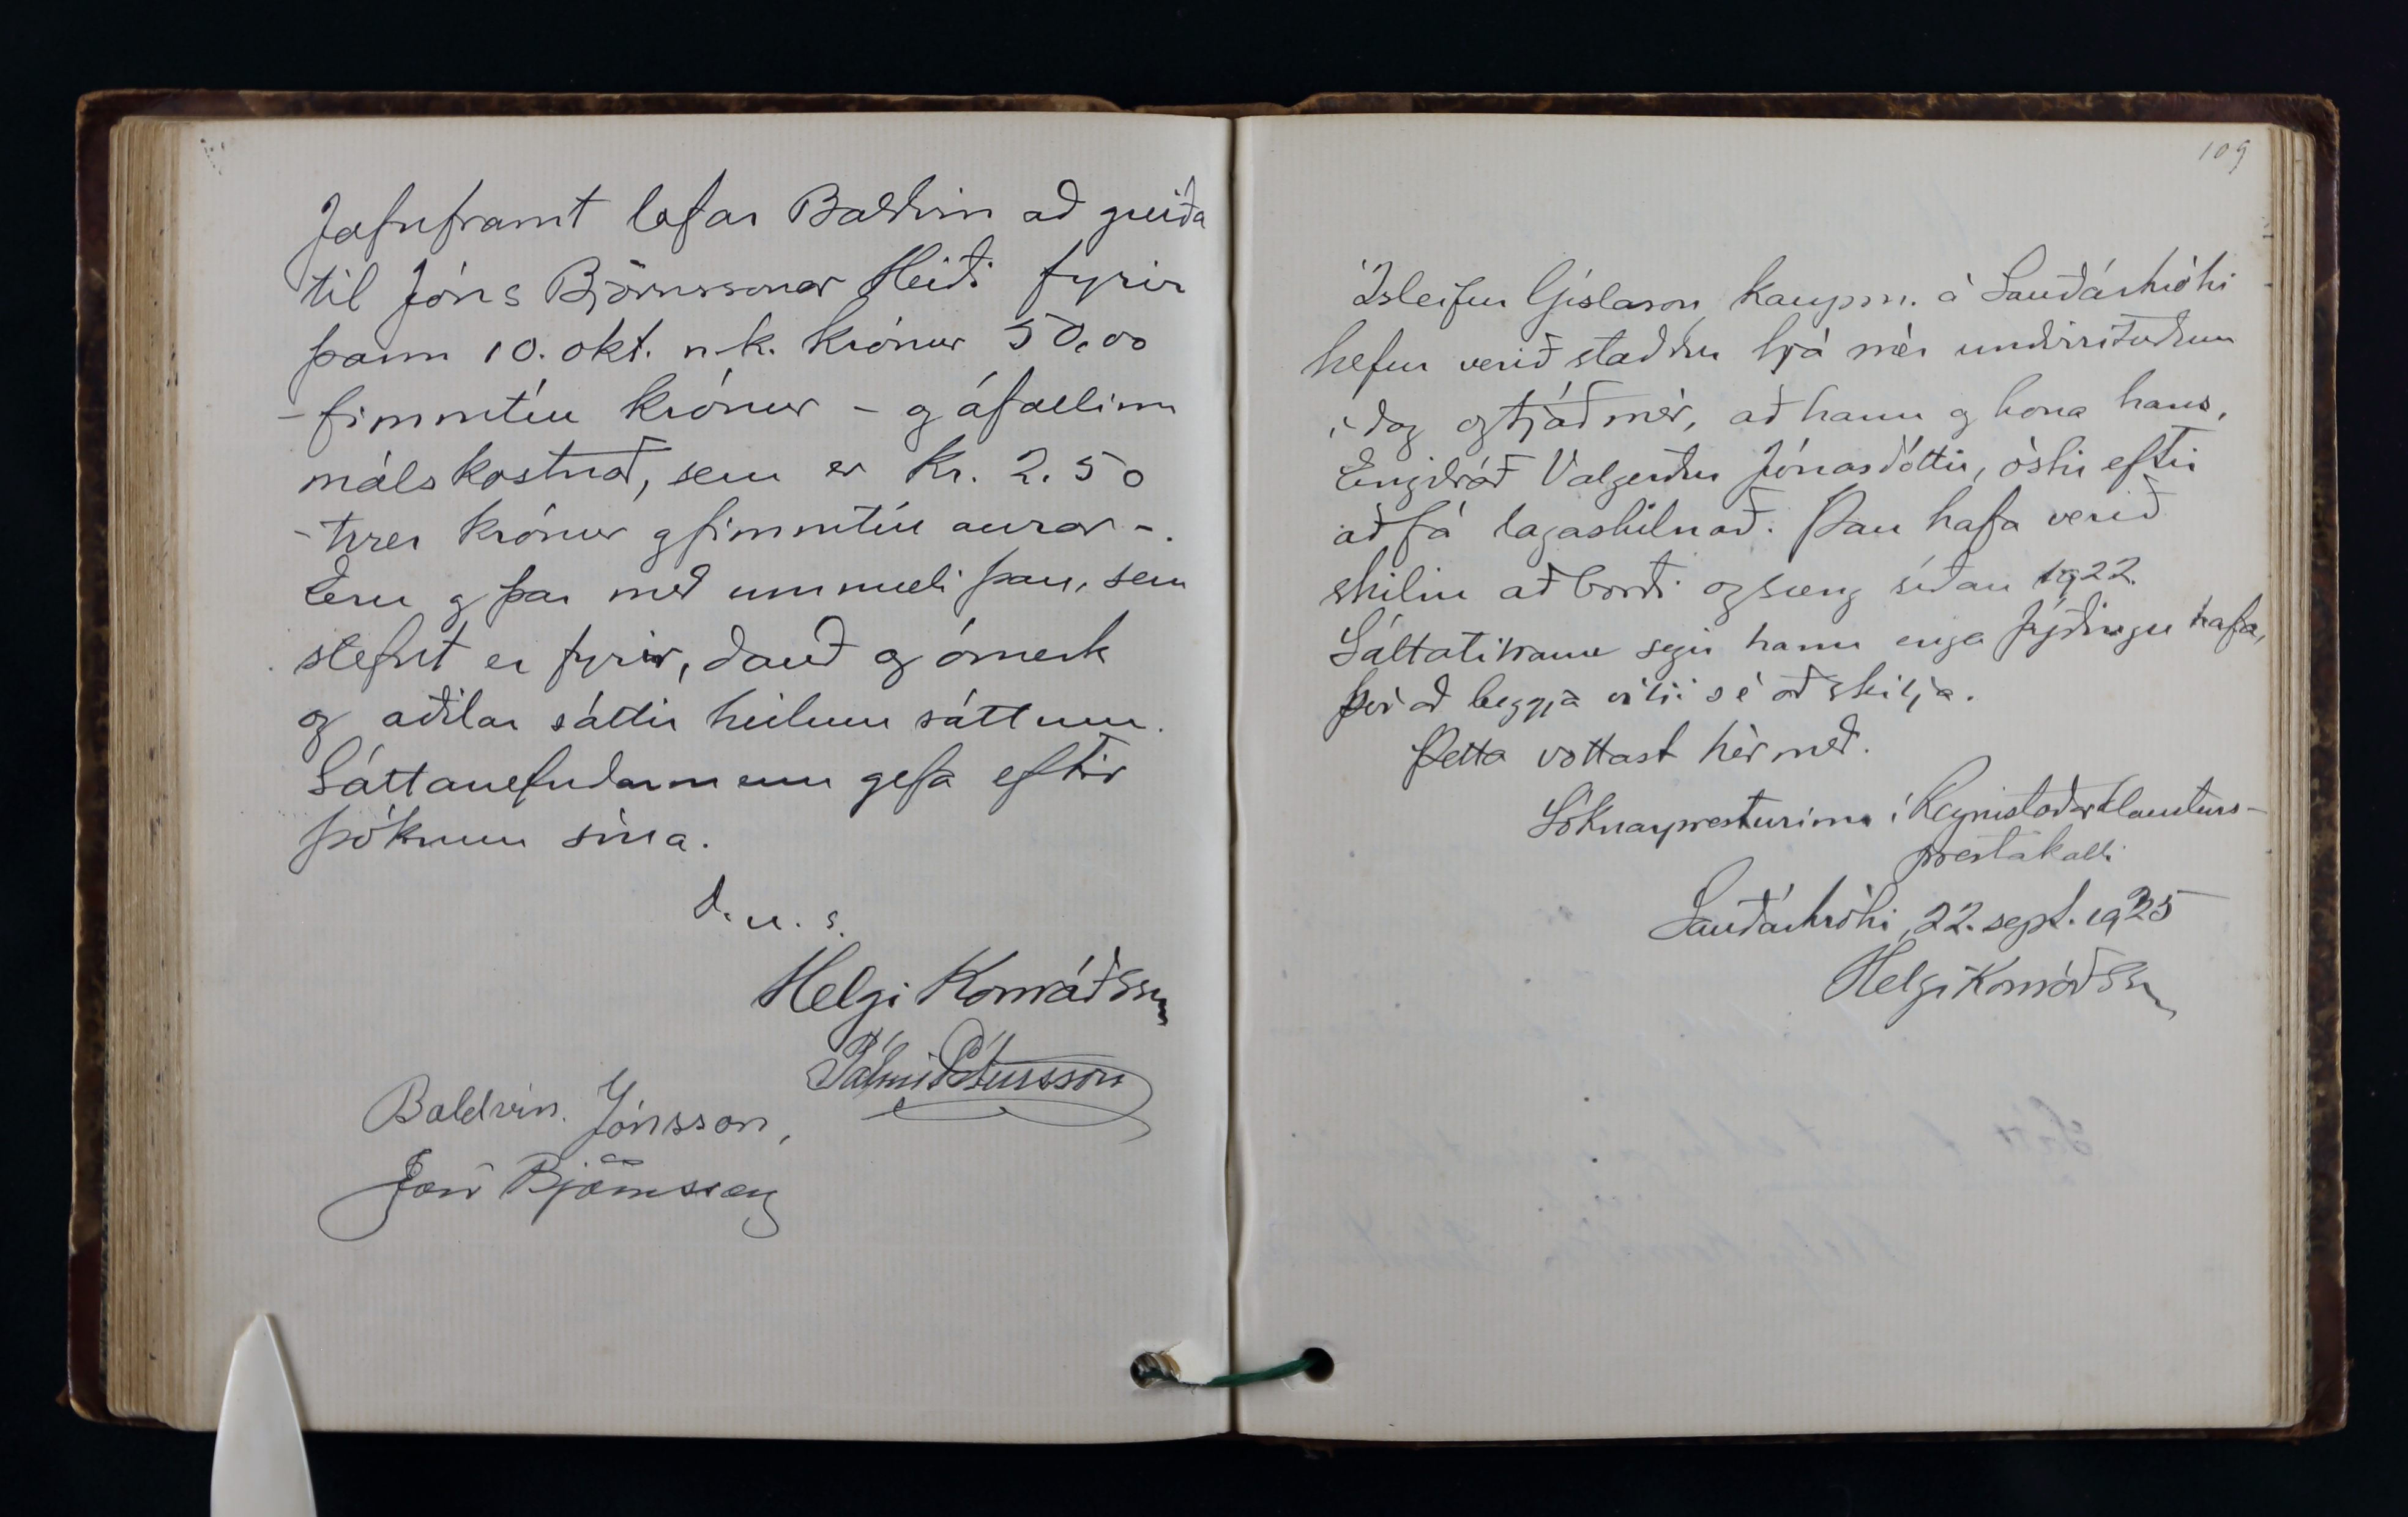 Jafnframt lofar Baldvin að greiða
til Jóns Björnssonar Heiði fyrir
þann 10. okt. n.k. krónur 50,00
- fimmtíu krónur - og áfallinn
málskostnað, sem er kr. 2.50
- tvær krónur og fimmtíu aurar -.
Eru og þar með ummæli þau, sem
stefnt er fyrir, dauð og ómerk
og aðilar sáttir heilum sáttum.
Sáttanefndarmenn gefa eftir
þóknun sína.
D. u. s.
Helgi Konráðsson
Pálmi Pétursson
Baldvin Jónsson,
Jón Björnsson
109
Ísleifur Gíslason, kaupm. á Sauðárkróki
hefur verið staddur hjá mér undirrituðum
í dag og tjáð mér, að hann og kona hans,
Engidráð Valgerður Jónasdóttir, óski eftir
að fá lagaskilnað. Þau hafa verið
skilin að borði og sæng síðan 1922.
Sáttatilraun segir hann enga þýðingu hafa,
því að beggja vilji sé að skilja.
Þetta vottast hér með.
Sóknarpresturinn í Reynistaðarklausturs-
prestakalli
Sauðárkróki, 22. sept. 1925
Helgi Konráðsson